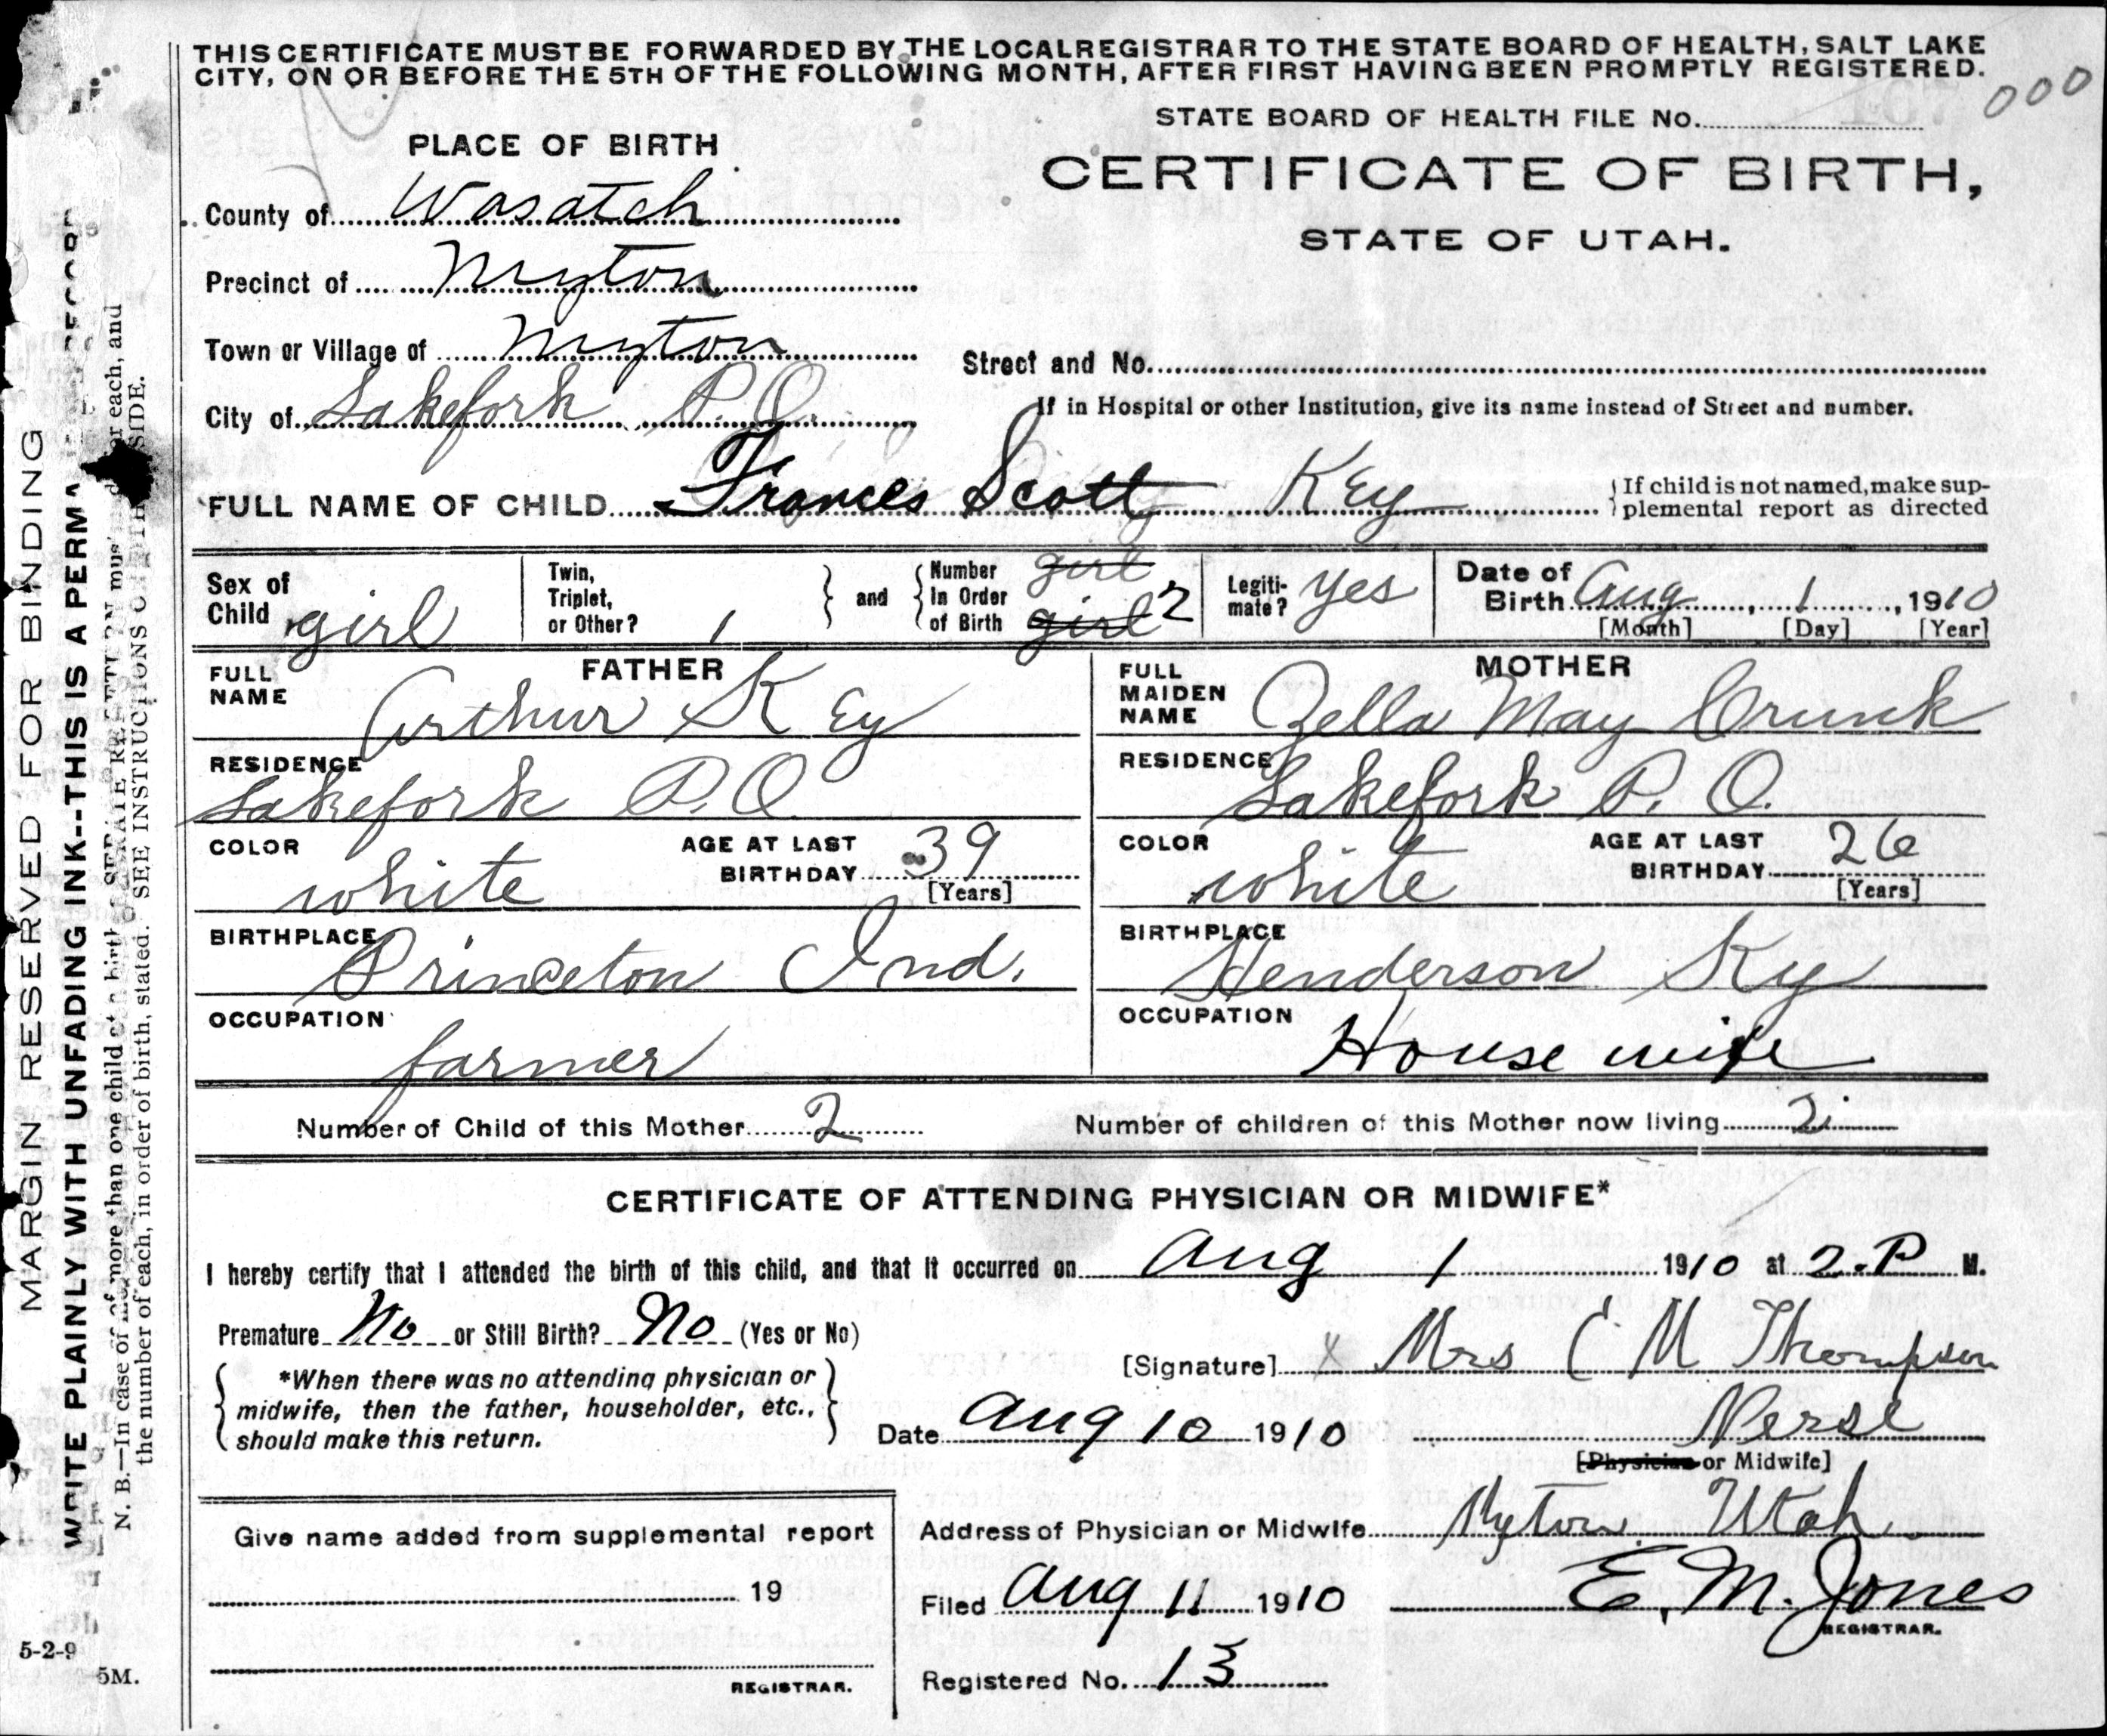 THIS CERTIFICATE MUST BE FORWARDED BY THE LOCAL REGISTRAR TO THE STATE BOARD OF HEALTH, SALT LAKE
CITY, ON OR BEFORE THE 5TH OF THE FOLLOWING MONTH, AFTER FIRST HAVING BEEN PROMPTLY REGISTERED.
000
STATE BOARD OF HEALTH FILE No.
PLACE OF BIRTH
CERTIFICATE OF BIRTH,
STATE OF UTAH.
County of Wasatch
Precinct of Myton
Town or Village of Myton
Street and No.
City of Lakefork P.O.
If in Hospital or other Institution, give its name instead of Street and number.
FULL NAME OF CHILD Frances Scott Key
If child is not named, make sup-
plemental report as directed
Sex of Child girl
Twin, Triplet, or Other? 1
and
Number In Order of Birth girl girl 2
Legiti-mate? yes
Date of Birth Aug 1, 1910
[Month] [Day] [Year]
FATHER
FULL NAME Arthur Key
RESIDENCE Lakefork P.O.
COLOR white
AGE AT LAST BIRTHDAY 39
[Years]
BIRTHPLACE Princeton Ind.
OCCUPATION farmer
MOTHER
FULL MAIDEN NAME Zella May Crunk
RESIDENCE Lakefork P.O.
COLOR white
AGE AT LAST BIRTHDAY 26
[Years]
BIRTHPLACE Henderson Ky
OCCUPATION House wife
Number of Child of this Mother 2
Number of children of this Mother now living 2
CERTIFICATE OF ATTENDING PHYSICIAN OR MIDWIFE*
I hereby certify that I attended the birth of this child, and that it occurred on Aug 1 1910 at 2.P M.
Premature No or Still Birth? No (Yes or No)
*When there was no attending physician or
midwife, then the father, householder, etc.,
should make this return.
[Signature] x Mrs C M Thompson
Date Aug 10 1910
Nerse
[Physician or Midwife]
Address of Physician or Midwife Myton Utah.
Give name added from supplemental report
19
REGISTRAR.
Filed Aug 11 1910
E. M. Jones
REGISTRAR.
Registered No. 13
MARGIN RESERVED FOR BINDING
WRITE PLAINLY WITH UNFADING INK--THIS IS A PERMA
N. B.—In case of more than one child at a birth a SEPARATE RETURN must or each, and
the number of each, in order of birth, stated. SEE INSTRUCTIONS SIDE.
5-2-9
5M.